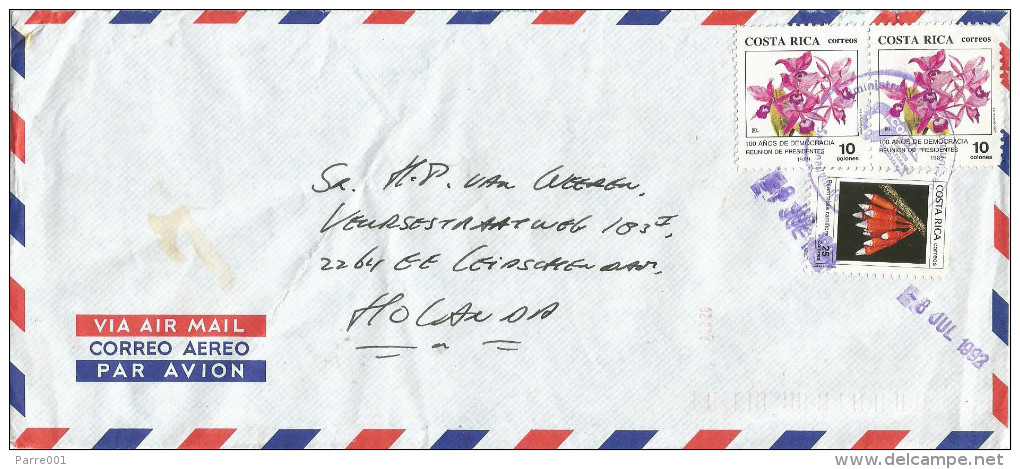 COSTA RICA correos
COSTA RICA correos
10
100 AÑOS DE DEMOCRACIA
REUNION DE PRESIDENTES
1989
10
colones
10
100 AÑOS DE DEMOCRACIA
REUNION DE PRESIDENTES
1989
10
colones
COSTA RICA correos
25
SR. H.P. VAN WEEREN,
VEURSESTRAATWEG 183 I,
2264 EE LEIDSCHENDAM,
HOLANDA
8 JUL 1992
VIA AIR MAIL
CORREO AEREO
PAR AVION
Parre001